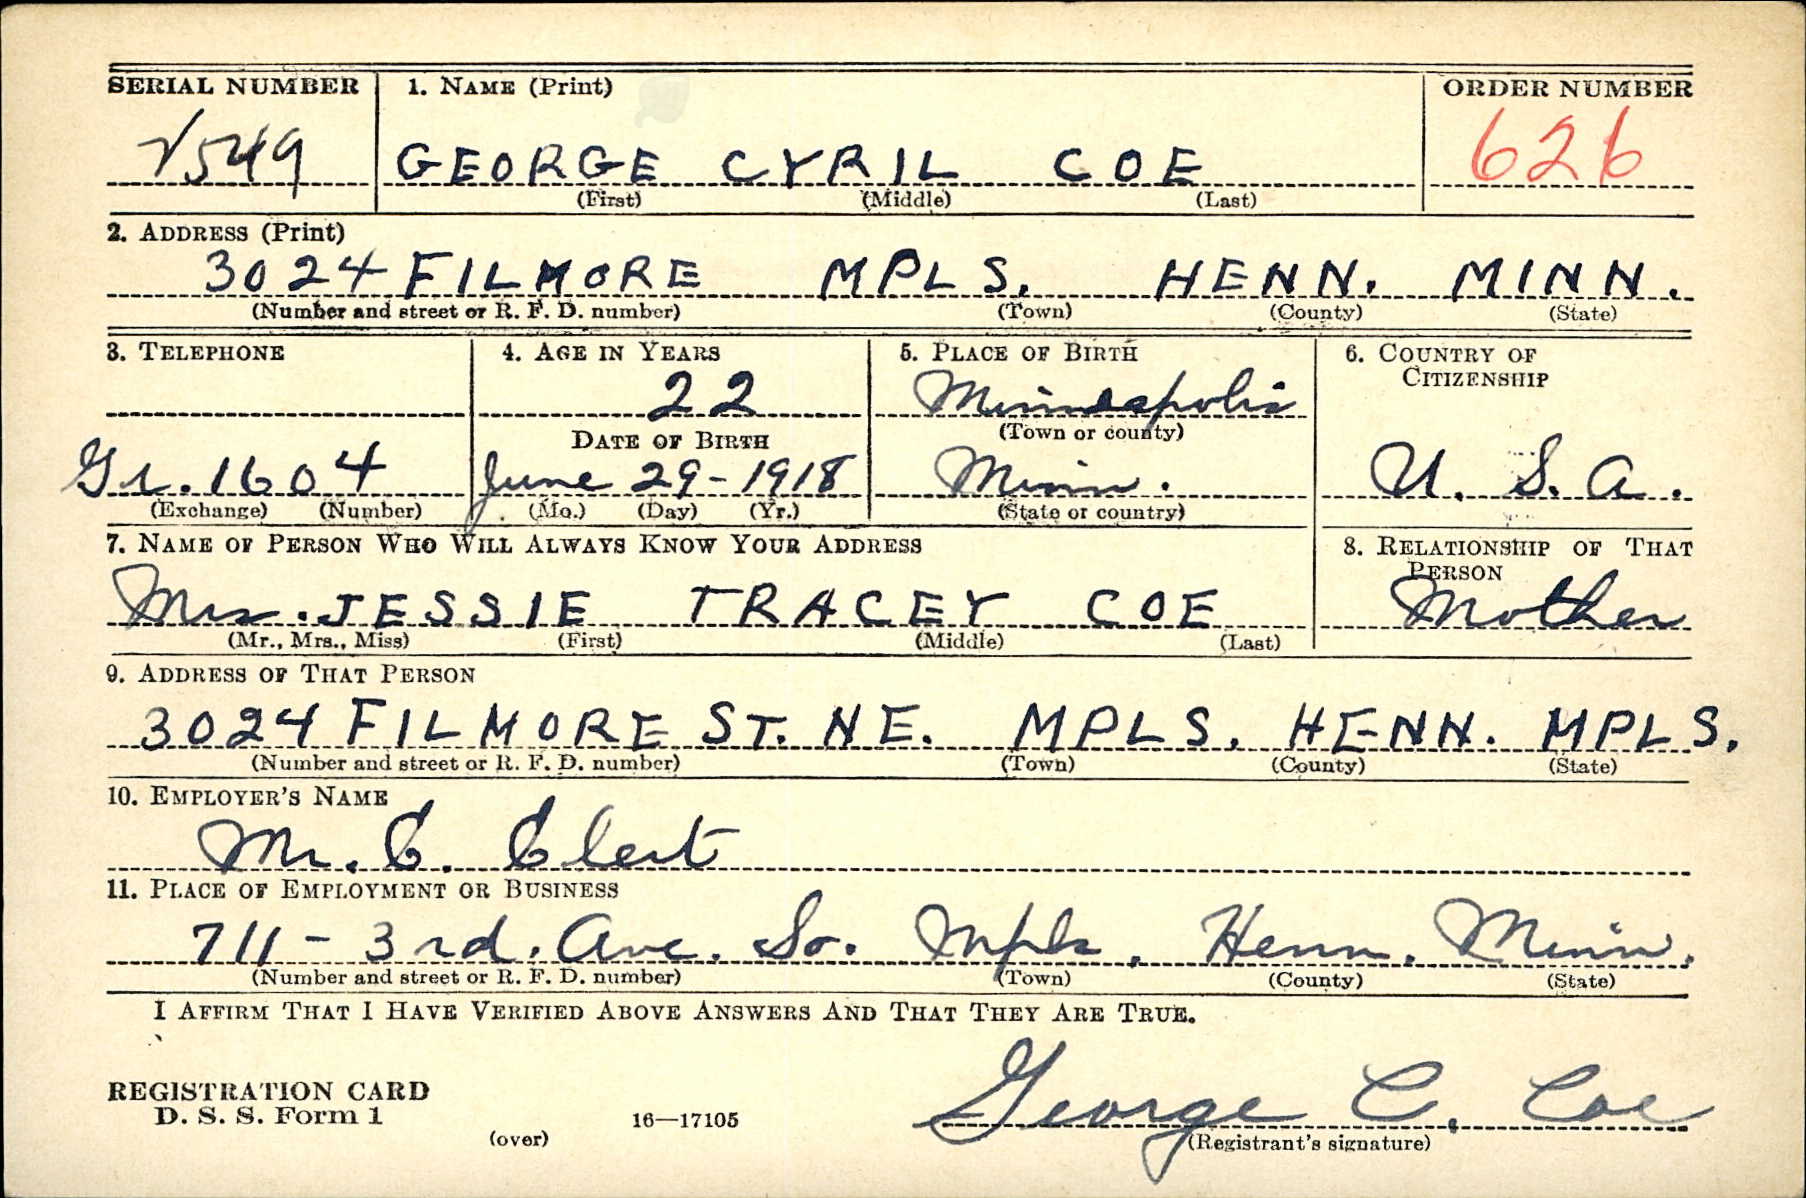 SERIAL NUMBER 1. NAME (Print) ORDER NUMBER
549 GEORGE CYRIL COE 626
(First) (Middle) (Last)
2. ADDRESS (Print)
3024 FILMORE MPLS. HENN. MINN.
(Number and street or R. F. D. number) (Town) (County) (State)
3. TELEPHONE 4. AGE IN YEARS 5. PLACE OF BIRTH 6. COUNTRY OF
CITIZENSHIP
22 Minneapolis
DATE OF BIRTH (Town or county)
Gr. 1604 June 29-1918 Minn. U. S. A.
(Exchange) (Number) (Mo.) (Day) (Yr.) (State or country)
7. NAME OF PERSON WHO WILL ALWAYS KNOW YOUR ADDRESS 8. RELATIONSHIP OF THAT
PERSON
Mrs. JESSIE TRACEY COE Mother
(Mr., Mrs., Miss) (First) (Middle) (Last)
9. ADDRESS OF THAT PERSON
3024 FILMORE ST. NE. MPLS. HENN. MPLS.
(Number and street or R. F. D. number) (Town) (County) (State)
10. EMPLOYER'S NAME
Mr. C.
11. PLACE OF EMPLOYMENT OR BUSINESS
711 - 3rd. Ave. So. Mpls. Henn. Minn.
(Number and street or R. F. D. number) (Town) (County) (State)
I AFFIRM THAT I HAVE VERIFIED ABOVE ANSWERS AND THAT THEY ARE TRUE.
George C. Coe
REGISTRATION CARD
D. S. S. Form 1 16—17105
(over) (Registrant's signature)